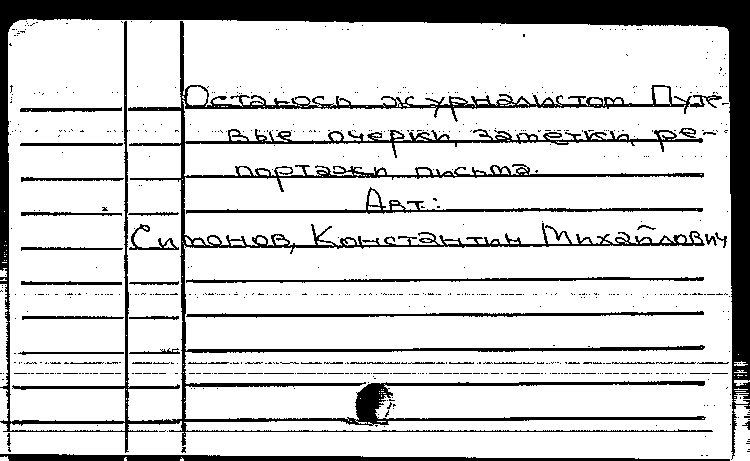 Остаюсь журналистом. Путе-
вые очерки, заметки, ре-
портажи, письма.
Авт.:
Симонов, Константин Михайлович